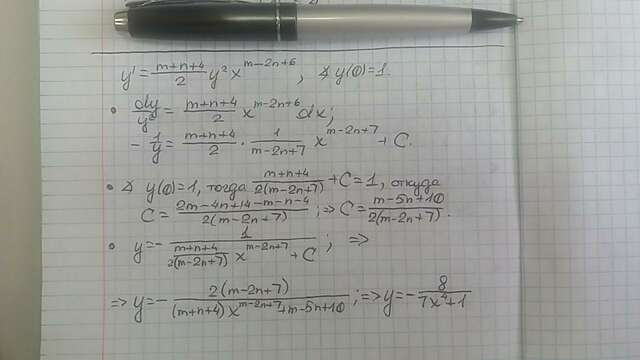 y' = \frac{m+n+4}{2} y² x^{m-2n+6}, ∢ y(0)=1.
• \frac{dy}{y²} = \frac{m+n+4}{2} x^{m-2n+6} dx;
- \frac{1}{y} = \frac{m+n+4}{2} · \frac{1}{m-2n+7} x^{m-2n+7} + C.
• ∢ y(0)=1, тогда \frac{m+n+4}{2(m-2n+7)} + C = 1, откуда
C = \frac{2m-4n+14-m-n-4}{2(m-2n+7)}; => C = \frac{m-5n+10}{2(m-2n+7)}.
• y = - \frac{1}{\frac{m+n+4}{2(m-2n+7)} x^{m-2n+7} + C}; =>
=> y = - \frac{2(m-2n+7)}{(m+n+4) x^{m-2n+7} + m-5n+10}; => y = - \frac{8}{7x^4+1}